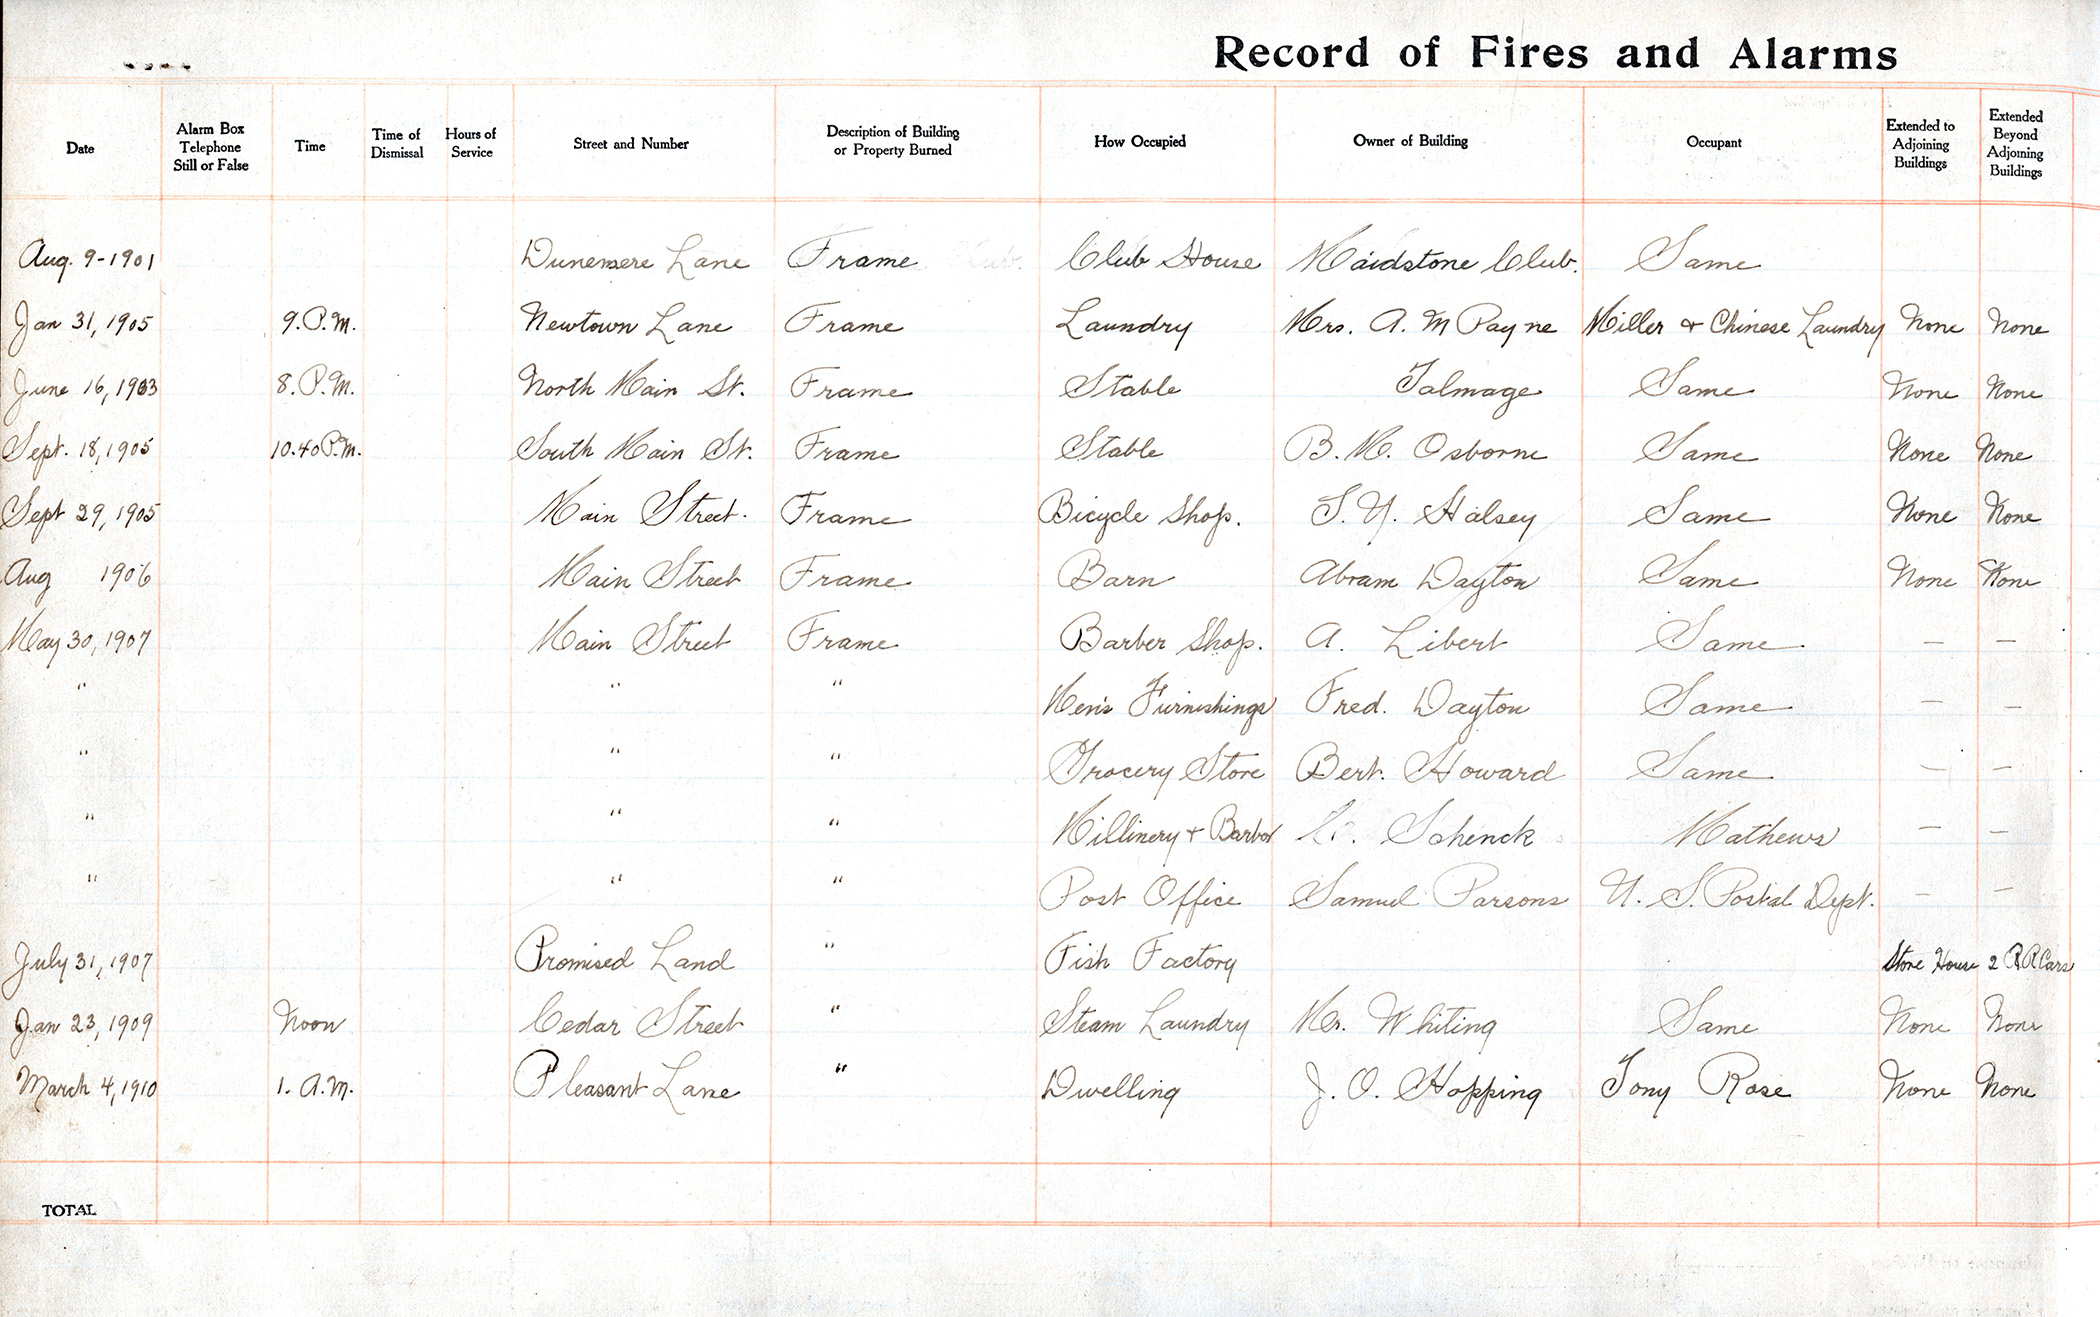 Record of Fires and Alarms
Date Alarm Box Telephone Still or False Time Time of Dismissal Hours of Service Street and Number Description of Building or Property Burned How Occupied Owner of Building Occupant Extended to Adjoining Buildings Extended Beyond Adjoining Buildings
Aug. 9-1901 Dunemere Lane Frame Club House Maidstone Club. Same
Jan 31, 1905 9. P.M. Newtown Lane Frame Laundry Mrs. A. M Payne Miller & Chinese Laundry None None
June 16, 1903 8. P.M. North Main St. Frame Stable Talmage Same None None
Sept. 18, 1905 10.40 P.M. South Main St. Frame Stable B. M. Osborne Same None None
Sept 29, 1905 Main Street. Frame Bicycle Shop. Halsey Same None None
Aug 1906 Main Street Frame Barn Abram Dayton Same None None
May 30, 1907 Main Street Frame Barber Shop. A. Libert Same — —
" " " Men's Furnishings Fred. Dayton Same — —
" " " Grocery Store Bert. Howard Same — —
" " " Millinery & Barber Schenck Mathews — —
" " " Post Office Samuel Parsons U. S. Postal Dept. — —
July 31, 1907 Promised Land " Fish Factory Store House 2 R R Cars
Jan 23, 1909 Noon Cedar Street " Steam Laundry Mr. Whiting Same None None
March 4, 1910 1. A.M. Pleasant Lane " Dwelling J. O. Hopping Tony Rose None None
TOTAL